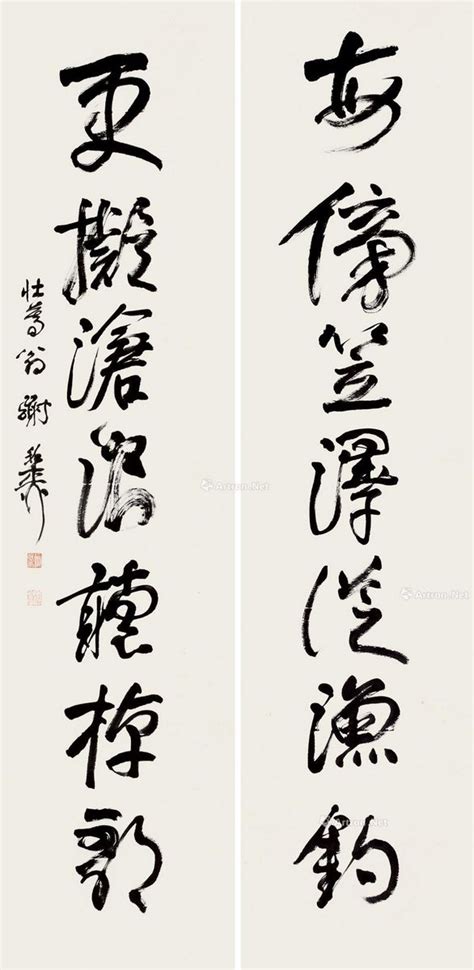 每傍笠澤從漁釣
更擬滄浪聽棹歌
壯暮翁謝稚柳
Artron.Net
Artron.Net
Artron.Net